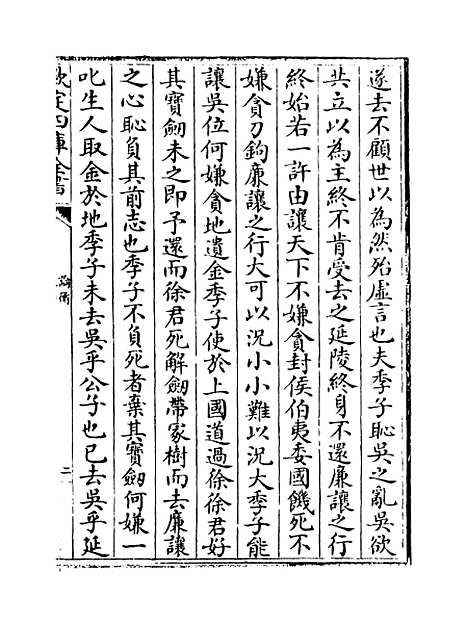 遂去不顧世以為然殆虛言也夫季子恥吳之亂吳欲
共立以為主終不肯受去之延陵終身不還廉讓之行
終始若一許由讓天下不嫌貪封侯伯夷委國饑死不
嫌貪刀鉤廉讓之行大可以況小小難以況大季子能
讓吳位何嫌貪地遺金季子使於上國道過徐徐君好
其寶劒未之即予還而徐君死解劒帶冢樹而去廉讓
之心恥負其前志也季子不負死者棄其寶劒何嫌一
叱生人取金於地季子未去吳乎公子也已去吳乎延
欽定四庫全書
論衡
二